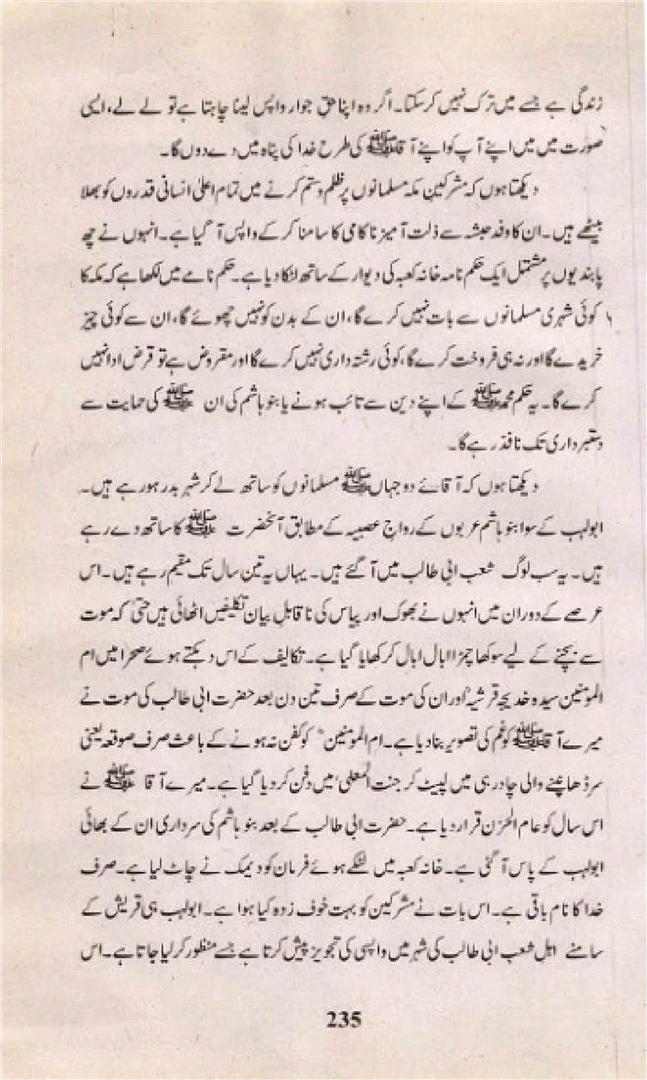 زندگی ہے جسے میں ترک نہیں کر سکتا۔ اگر وہ اپنا حق جوار واپس لینا چاہتا ہے تو لے لے، ایسی
صورت میں میں اپنے آپ کو اپنے آقا ﷺ کی طرح خدا کی پناہ میں دے دوں گا۔
دیکھتا ہوں کہ مشرکینِ مکہ مسلمانوں پر ظلم و ستم کرنے میں تمام اعلیٰ انسانی قدروں کو بھلا
بیٹھے ہیں۔ ان کا وفد حبشہ سے ذلت آمیز ناکامی کا سامنا کر کے واپس آ گیا ہے۔ انہوں نے چھ
پابندیوں پر مشتمل ایک حکم نامہ خانہ کعبہ کی دیوار کے ساتھ لٹکا دیا ہے۔ حکم نامے میں لکھا ہے کہ مکہ کا
کوئی شہری مسلمانوں سے بات نہیں کرے گا، ان کے بدن کو نہیں چھوئے گا، ان سے کوئی چیز
خریدے گا اور نہ ہی فروخت کرے گا، کوئی رشتہ داری نہیں کرے گا اور مقروض ہے تو قرض ادا نہیں
کرے گا۔ یہ حکم محمد ﷺ کے اپنے دین سے تائب ہونے یا بنو ہاشم کی ان ﷺ کی حمایت سے
دستبرداری تک نافذ رہے گا۔
دیکھتا ہوں کہ آقائے دو جہاں ﷺ مسلمانوں کو ساتھ لے کر شہر بدر ہو رہے ہیں۔
ابولہب کے سوا بنو ہاشم عربوں کے رواج عصبیہ کے مطابق آنحضرت ﷺ کا ساتھ دے رہے
ہیں۔ یہ سب لوگ شعب ابی طالب میں آ گئے ہیں۔ یہاں یہ تین سال تک مقیم رہے ہیں۔ اس
عرصے کے دوران میں انہوں نے بھوک اور پیاس کی ناقابلِ بیان تکلیفیں اٹھائی ہیں حتیٰ کہ موت
سے بچنے کے لیے سوکھا چمڑا ابال ابال کر کھایا گیا ہے۔ تکالیف کے اس دہکتے ہوئے صحرا میں ام
المومنین سیدہ خدیجہ قرشیہؓ اور ان کی موت کے صرف تین دن بعد حضرت ابی طالب کی موت نے
میرے آقا ﷺ کو غم کی تصویر بنا دیا ہے۔ ام المومنینؓ کو کفن نہ ہونے کے باعث صرف صوقعہ یعنی
سر ڈھانپنے والی چادر ہی میں لپیٹ کر جنت المعلیٰ میں دفن کر دیا گیا ہے۔ میرے آقا ﷺ نے
اس سال کو عام الحزن قرار دیا ہے۔ حضرت ابی طالب کے بعد بنو ہاشم کی سرداری ان کے بھائی
ابولہب کے پاس آ گئی ہے۔ خانہ کعبہ میں لٹکے ہوئے فرمان کو دیمک نے چاٹ لیا ہے۔ صرف
خدا کا نام باقی ہے۔ اس بات نے مشرکین کو بہت خوف زدہ کیا ہوا ہے۔ ابولہب ہی قریش کے
سامنے اہل شعب ابی طالب کی شہر میں واپسی کی تجویز پیش کرتا ہے جسے منظور کر لیا جاتا ہے۔ اس
235